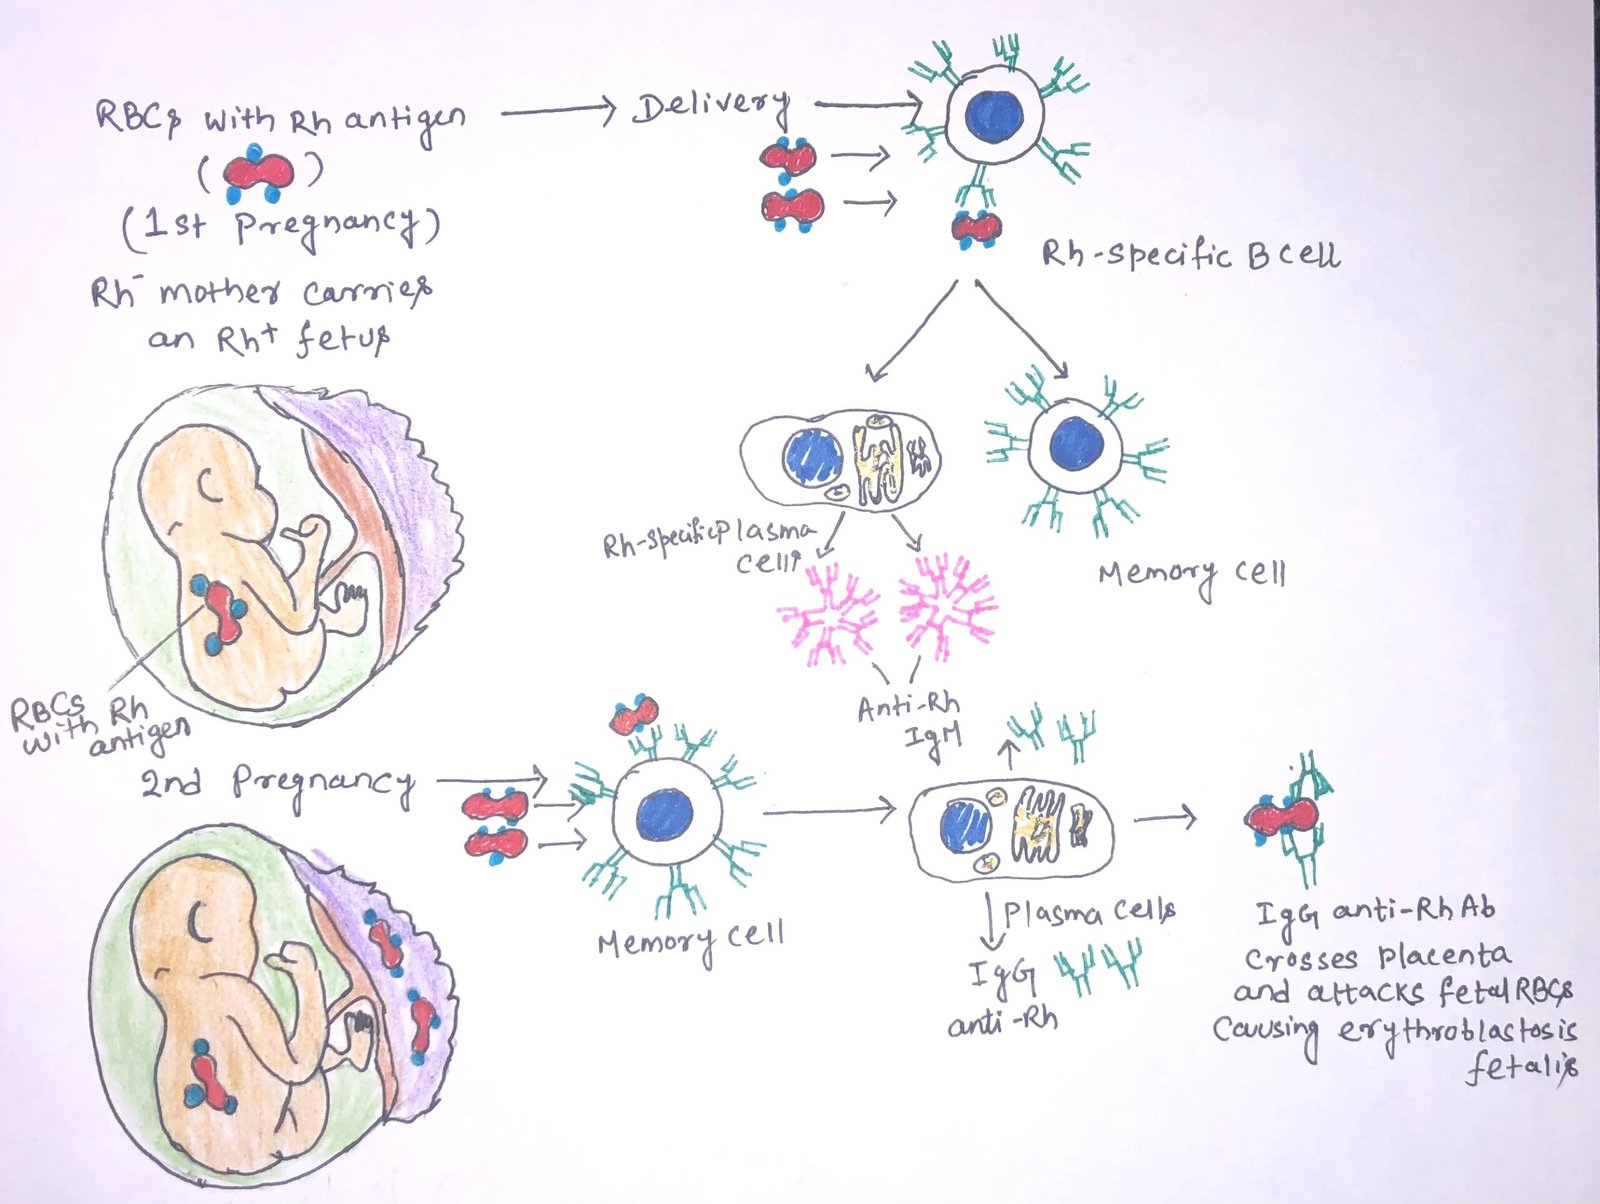 RBCs with Rh antigen
( )
(1st Pregnancy)
Rh- mother carries
an Rh+ fetus
Delivery
Rh-specific B cell
Rh-specific Plasma
cells
Memory cell
Anti-Rh
IgM
RBCs
with Rh
antigen
2nd Pregnancy
Memory cell
Plasma cells
IgG
anti-Rh
IgG anti-Rh Ab
crosses placenta
and attacks fetal RBCs
causing erythroblastosis
fetalis